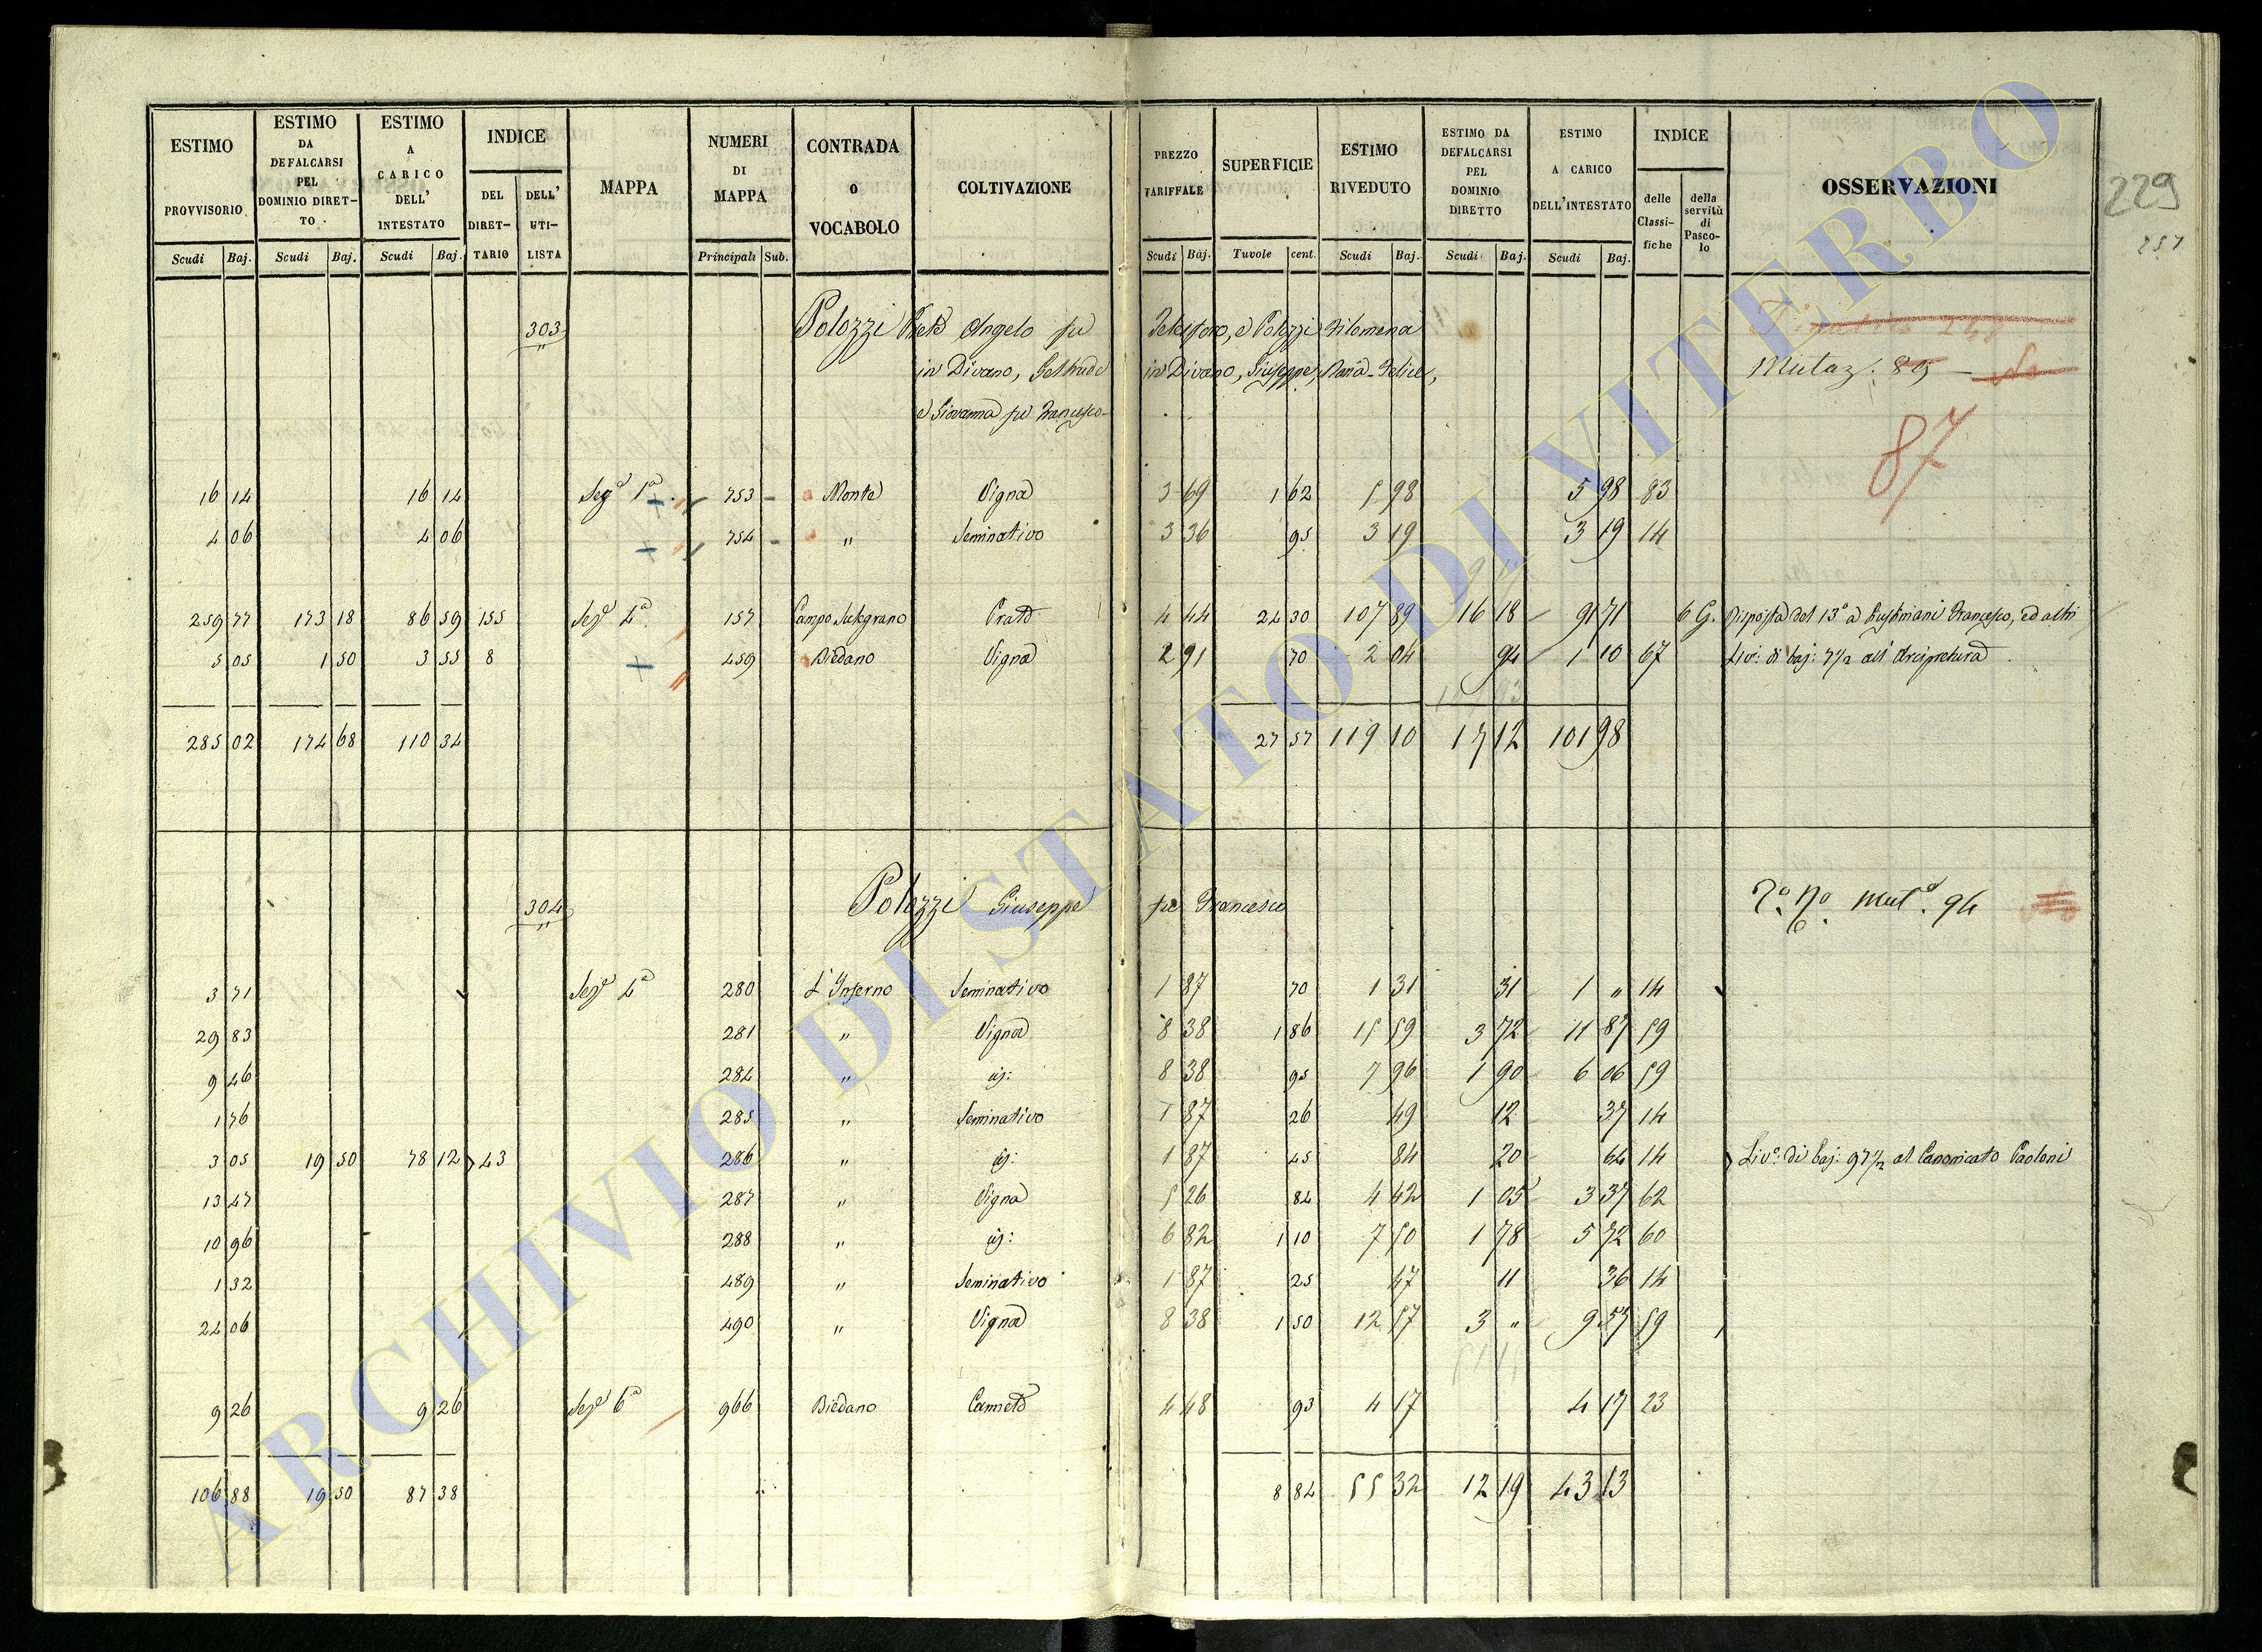 ESTIMO PROVVISORIO | ESTIMO DA DEFALCARSI PEL DOMINIO DIRET-TO. | ESTIMO A CARICO DELL' INTESTATO | INDICE | MAPPA | NUMERI DI MAPPA | CONTRADA O VOCABOLO | COLTIVAZIONE | PREZZO TARIFFALE | SUPERFICIE | ESTIMO RIVEDUTO | ESTIMO DA DEFALCARSI PEL DOMINIO DIRETTO | ESTIMO A CARICO DELL'INTESTATO | INDICE | OSSERVAZIONI
DEL DIRET-TARIO | DELL' UTI-LISTA | delle Classi-fiche | della servitù di Pasco-lo
Scudi | Baj. | Scudi | Baj. | Scudi | Baj. | Principali | Sub. | Scudi | Baj. | Tavole | cent. | Scudi | Baj. | Scudi | Baj. | Scudi | Baj.
229
257
303 Polozzi Angelo fu Telesforo, e Polozzi Filomena
in Divano, Geltrude in Divano, Giuseppe, Maria-Felice, Mutaz. 89
e Giovanna fu Francesco
87
16 14 | 16 14 | Sez.e 1a | 753 | Monte | Vigna | 3 69 | 1 62 | 5 98 | 5 98 | 83
4 06 | 4 06 | 754 | " | Seminativo | 3 36 | 95 | 3 19 | 3 19 | 14
259 77 | 173 18 | 86 59 | 155 | Sez.e 4a | 157 | Campo | Prato | 4 44 | 24 30 | 107 89 | 16 18 | 91 71 | 6 G. | Risposta del 13° a Francesco, ed altri
5 05 | 1 50 | 3 55 | 8 | 459 | Biedano | Vigna | 2 91 | 70 | 2 04 | 94 | 1 10 | 67 | Liv: di baj: 7 1/2 all' Arcipretura
285 02 | 174 68 | 110 34 | 27 57 | 119 10 | 17 12 | 101 98
304 Polozzi Giuseppe fu Francesco | Mut.e 94
3 71 | Sez.e 4a | 280 | L'Inferno | Seminativo | 1 87 | 70 | 1 31 | 31 | 1 " | 14
29 83 | 281 | " | Vigna | 8 38 | 1 86 | 15 59 | 3 72 | 11 87 | 59
9 46 | 284 | " | id: | 8 38 | 95 | 7 96 | 1 90 | 6 06 | 59
1 76 | 285 | " | Seminativo | 1 87 | 26 | 49 | 12 | 37 | 14
3 05 | 19 50 | 78 12 | 43 | 286 | " | id: | 1 87 | 45 | 84 | 20 | 64 | 14 | Liv.o di baj: 97 1/2 al Canonicato Paoloni
13 47 | 287 | " | Vigna | 5 26 | 84 | 4 42 | 1 05 | 3 37 | 62
10 96 | 288 | " | id: | 6 82 | 1 10 | 7 50 | 1 78 | 5 72 | 60
1 32 | 489 | " | Seminativo | 1 87 | 25 | 47 | 11 | 36 | 14
24 06 | 490 | " | Vigna | 8 38 | 1 50 | 12 57 | 3 " | 9 57 | 59
9 26 | 9 26 | Sez.e 6a | 966 | Biedano | Canneto | 4 48 | 93 | 4 17 | 4 17 | 23
106 88 | 19 50 | 87 38 | 8 84 | 55 32 | 12 19 | 43 13
ARCHIVIO DI STATO DI VITERBO